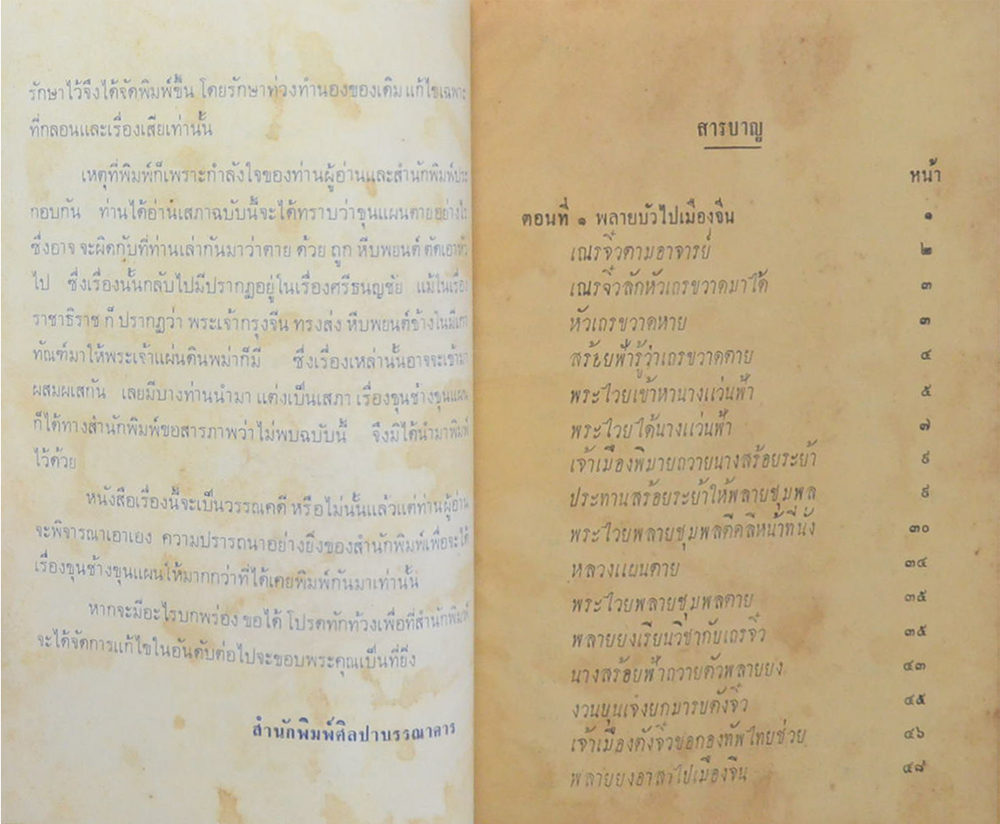 รักษาไว้จึงได้จัดพิมพ์ขึ้น โดยรักษาท่วงทำนองของเดิม แก้ไขเฉพาะ
ที่กลอนและเรื่องเสียเท่านั้น
เหตุที่พิมพ์ก็เพราะกำลังใจของท่านผู้อ่านและสำนักพิมพ์ประ
กอบกัน ท่านได้อ่านเสภาฉบับนี้จะได้ทราบว่าขุนแผนตายอย่างไร
ซึ่งอาจ จะผิดกับที่ท่านเล่ากันมาว่าตาย ด้วย ถูก หีบพยนต์ ตัดเอาหัว
ไป ซึ่งเรื่องนั้นกลับไปมีปรากฏอยู่ในเรื่องศรีธนญชัย แม้ในเรื่อง
ราชาธิราช ก็ ปรากฏว่า พระเจ้ากรุงจีน ทรงส่ง หีบพยนต์ข้างในมีเกา
ทัณฑ์มาให้พระเจ้าแผ่นดินพม่าก็มี ซึ่งเรื่องเหล่านี้อาจจะเข้ามา
ผสมผเสกัน เลยมีบางท่านนำมา แต่งเป็นเสภา เรื่องขุนช้างขุนแผน
ก็ได้ทางสำนักพิมพ์ขอสารภาพว่าไม่พบฉบับนี้ จึงมิได้นำมาพิมพ์
ไว้ด้วย
หนังสือเรื่องนี้จะเป็นวรรณคดี หรือ ไม่นั้นแล้วแต่ท่านผู้อ่าน
จะพิจารณาเอาเอง ความปรารถนาอย่างยิ่งของสำนักพิมพ์เพื่อจะได้
เรื่องขุนช้างขุนแผนให้มากกว่าที่ได้เคยพิมพ์กันมาเท่านั้น
หากจะมีอะไรบกพร่อง ขอได้ โปรดทักท้วงเพื่อที่สำนักพิมพ์
จะได้จัดการแก้ไขในอันดับต่อไปจะขอบพระคุณเป็นที่ยิ่ง
สำนักพิมพ์ศิลปาบรรณาคาร
สารบาญ
หน้า
ตอนที่ ๑ พลายบัวไปเมืองจีน ๑
เณรจิ๋วตามอาจารย์ ๒
เณรจิ๋วลักหัวเถรขวาดมาได้ ๓
หัวเถรขวาดหาย ๓
สร้อยฟ้ารู้ว่าเถรขวาดตาย ๔
พระไวยเข้าหานางแว่นฟ้า ๕
พระไวยได้นางแว่นฟ้า ๗
เจ้าเมืองพิมายถวายนางสร้อยระย้า ๙
ประทานสร้อยระย้าให้พลายชุมพล ๙
พระไวยพลายชุมพลตีคลีหน้าที่นั่ง ๓๐
หลวงแผนตาย ๓๔
พระไวยพลายชุมพลตาย ๓๕
พลายยงเรียนวิชากับเถรจิ๋ว ๓๕
นางสร้อยฟ้าถวายตัวพลายยง ๔๓
งวนบุนเจ๋งยกมารบตังจิ๋ว ๔๕
เจ้าเมืองตังจิ๋วขอกองทัพไทยช่วย ๔๖
พลายยงอาสาไปเมืองจีน ๔๘